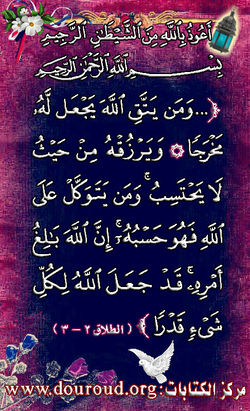 أَعُوذُ بِاللَّهِ مِنَ الشَّيْطَٰنِ الرَّجِيمِ
بِسْمِ اللَّهِ الرَّحْمَٰنِ الرَّحِيمِ
﴿...وَمَن يَتَّقِ ٱللَّهَ يَجْعَل لَّهُۥ
مَخْرَجًا ۞ وَيَرْزُقْهُ مِنْ حَيْثُ
لَا يَحْتَسِبُ ۚ وَمَن يَتَوَكَّلْ عَلَى
ٱللَّهِ فَهُوَ حَسْبُهُۥٓ ۚ إِنَّ ٱللَّهَ بَٰلِغُ
أَمْرِهِۦ ۚ قَدْ جَعَلَ ٱللَّهُ لِكُلِّ
شَىْءٍ قَدْرًا ﴾ ( الطلاق ٢ - ٣ )
مركز الكتابات: www.douroud.org